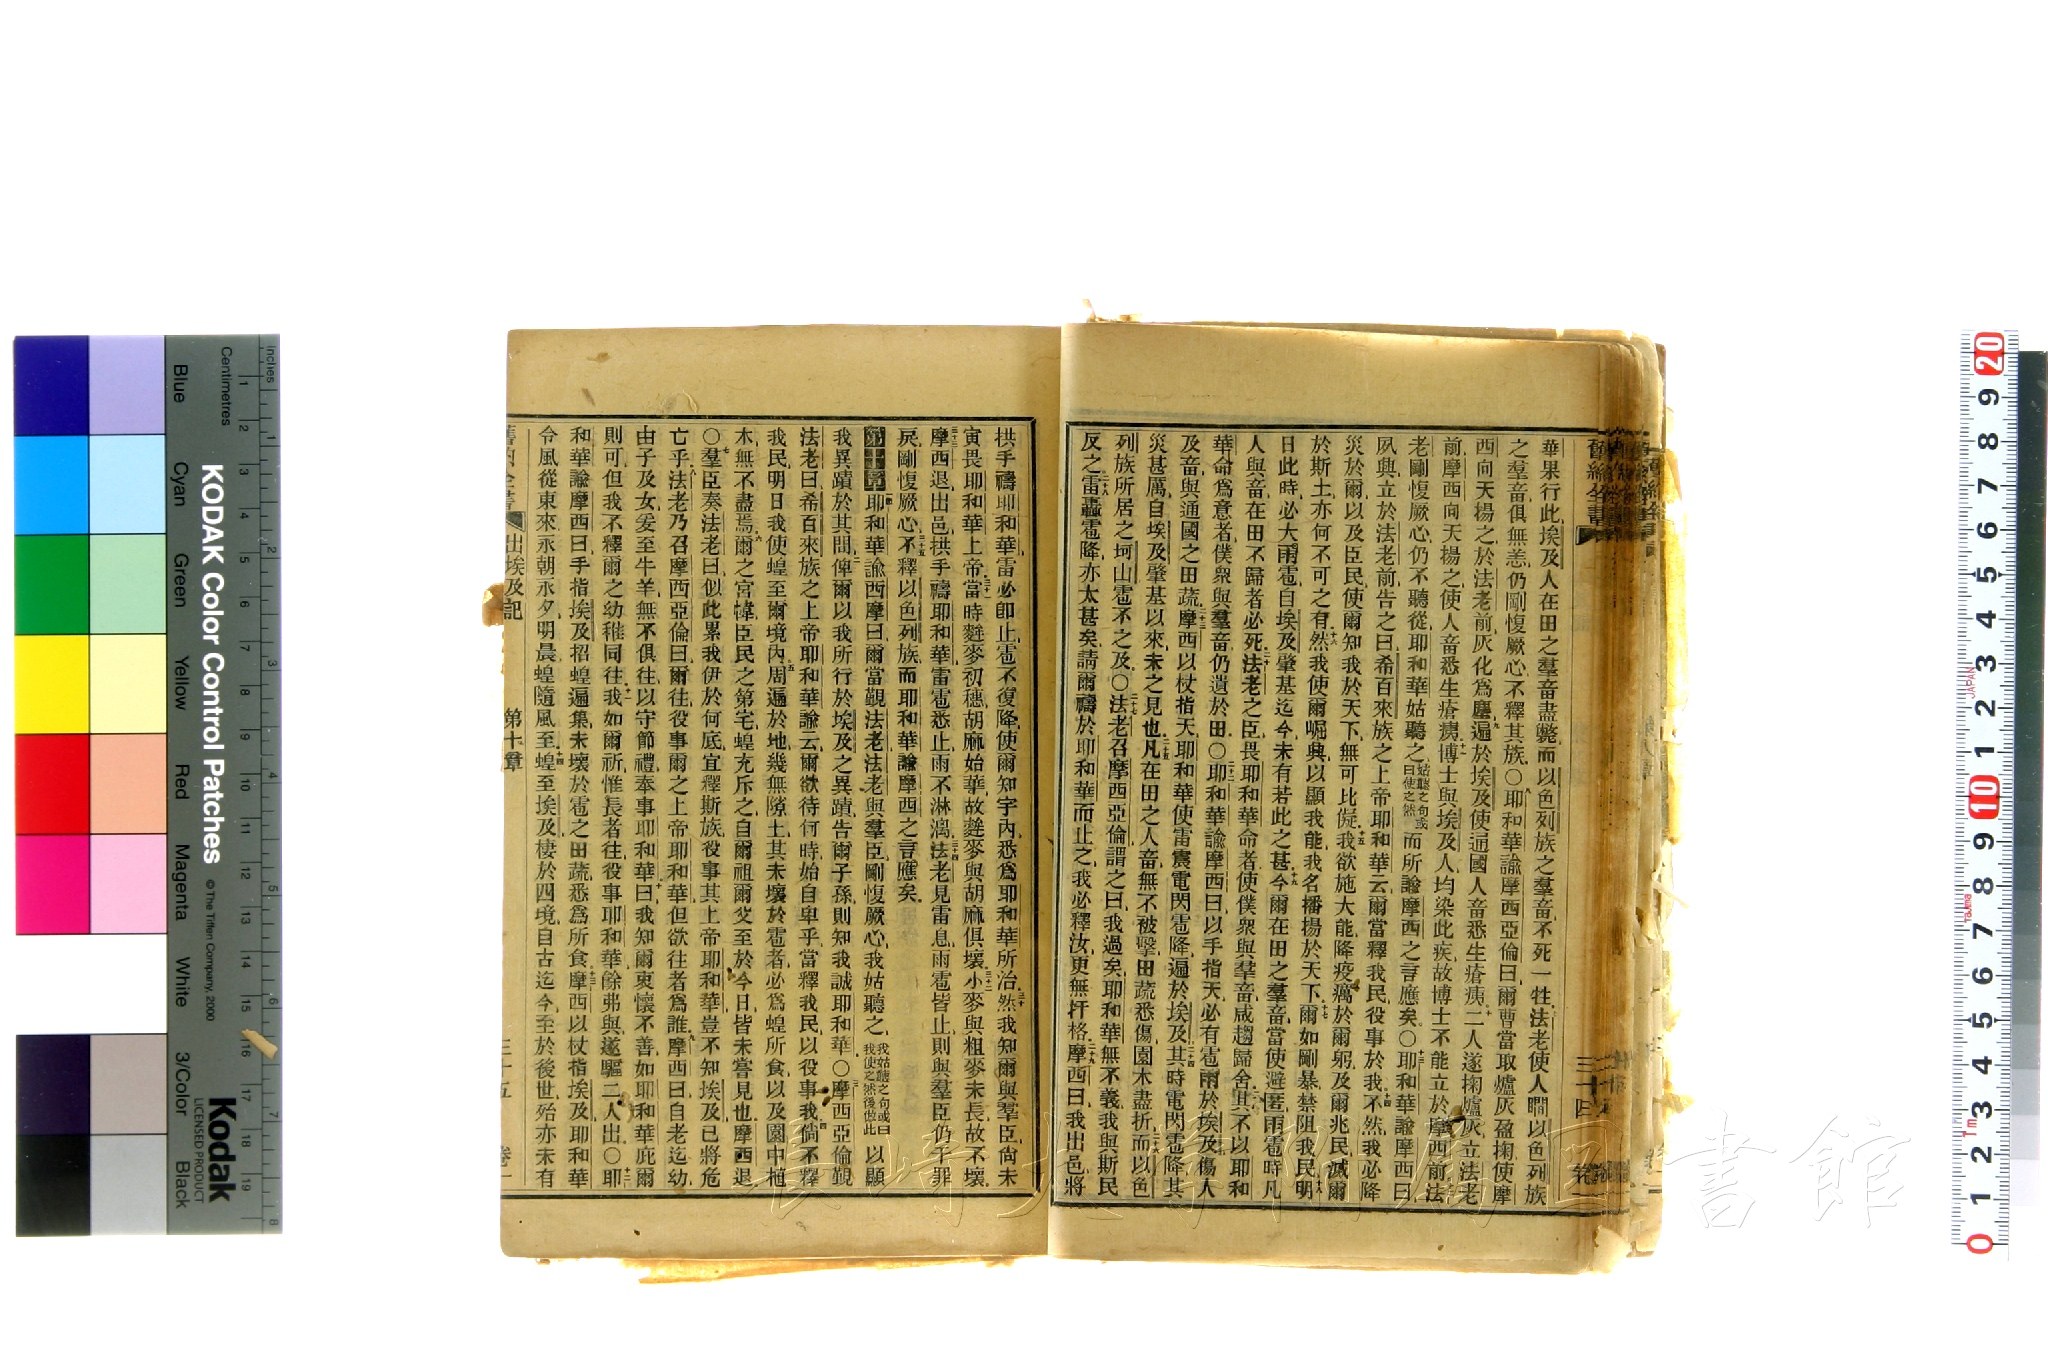 華果行此埃及人在田之羣畜盡斃而以色列族之羣畜不死一牲法老使人瞷以色列族
之羣畜俱無恙仍剛愎厥心不釋其族○耶和華諭摩西亞倫曰爾曹當取爐灰盈掬使摩
西向天楊之於法老前灰化爲塵遍於埃及使通國人畜悉生瘡痍二人遂掬爐灰立法老
前摩西向天楊之使人畜悉生瘡痍博士與埃及人均染此疾故博士不能立於摩西前法
老剛愎厥心仍不聽從耶和華姑聽之姑聽之句或曰使之然而所諭摩西之言應矣○耶和華諭摩西曰
夙興立於法老前告之曰希百來族之上帝耶和華云爾當釋我民役事於我不然我必降
災於爾以及臣民使爾知我於天下無可比儗我欲施大能降疫癘於爾躬及爾兆民滅爾
於斯土亦何不可之有然我使爾崛興以顯我能我名播揚於天下爾如剛暴禁阻我民明
日此時必大雨雹自埃及肇基迄今未有若此之甚今爾在田之羣畜當使避匿雨雹時凡
人與畜在田不歸者必死法老之臣畏耶和華命者使僕衆與羣畜咸趨歸舍其不以耶和
華命爲意者僕衆與羣畜仍遺於田○耶和華諭摩西曰以手指天必有雹雨於埃及傷人
及畜與通國之田蔬摩西以杖指天耶和華使雷震電閃雹降遍於埃及其時電閃雹降其
災甚厲自埃及肇基以來未之見也凡在田之人畜無不被擊田蔬悉傷園木盡折而以色
列族所居之坷山雹不之及○法老召摩西亞倫謂之曰我過矣耶和華無不義我與斯民
反之雷轟雹降亦太甚矣請爾禱於耶和華而止之我必釋汝更無扞格摩西曰我出邑將
三十四
拱手禱耶和華雷必卽止雹不復降使爾知宇內悉爲耶和華所治然我知爾與羣臣尙未
寅畏耶和華上帝當時麰麥初穗胡麻始華故麰麥與胡麻俱壞小麥與粗麥未長故不壞
摩西退出邑拱手禱耶和華雷雹悉止雨不淋漓法老見雷息雨雹皆止則與羣臣仍干罪
戾剛愎厥心不釋以色列族而耶和華諭摩西之言應矣
第十章耶和華諭西摩曰爾當覲法老法老與羣臣剛愎厥心我姑聽之我姑聽之句或曰我使之然後倣此以顯
我異蹟於其間俾爾以我所行於埃及之異蹟告爾子孫則知我誠耶和華○摩西亞倫覲
法老曰希百來族之上帝耶和華諭云爾欲待何時始自卑乎當釋我民以役事我倘不釋
我民明日我使蝗至爾境內周遍於地幾無隙土其未壞於雹者必爲蝗所食以及園中植
木無不盡焉爾之宮幃臣民之第宅蝗充斥之自爾祖爾父至於今日皆未嘗見也摩西退
○羣臣奏法老曰似此累我伊於何底宜釋斯族役事其上帝耶和華豈不知埃及已將危
亡乎法老乃召摩西亞倫曰爾往役事爾之上帝耶和華但欲往者爲誰摩西曰自老迄幼
由子及女爰至牛羊無不俱往以守節禮奉事耶和華曰我知爾衷懷不善如耶和華庇爾
則可但我不釋爾之幼稚同往我如爾祈惟長者往役事耶和華餘弗與遂驅二人出○耶
和華諭摩西曰手指埃及招蝗遍集未壞於雹之田蔬悉爲所食摩西以杖指埃及耶和華
令風從東來永朝永夕明晨蝗隨風至蝗至埃及棲於四境自古迄今至於後世殆亦未有
舊約全書 出埃及記 第十章 三十五 卷一
長崎大學附屬圖書館
KODAK Color Control Patches
© The Tiffen Company, 2000
Kodak
LICENSED PRODUCT
Inches
Centimetres
Blue Cyan Green Yellow Red Magenta White 3/Color Black
1 2 3 4 5 6 7 8 9 10 11 12 13 14 15 16 17 18 19
20 9 8 7 6 5 4 3 2 1 10 9 8 7 6 5 4 3 2 1 0
JAPAN
Tajima
1m